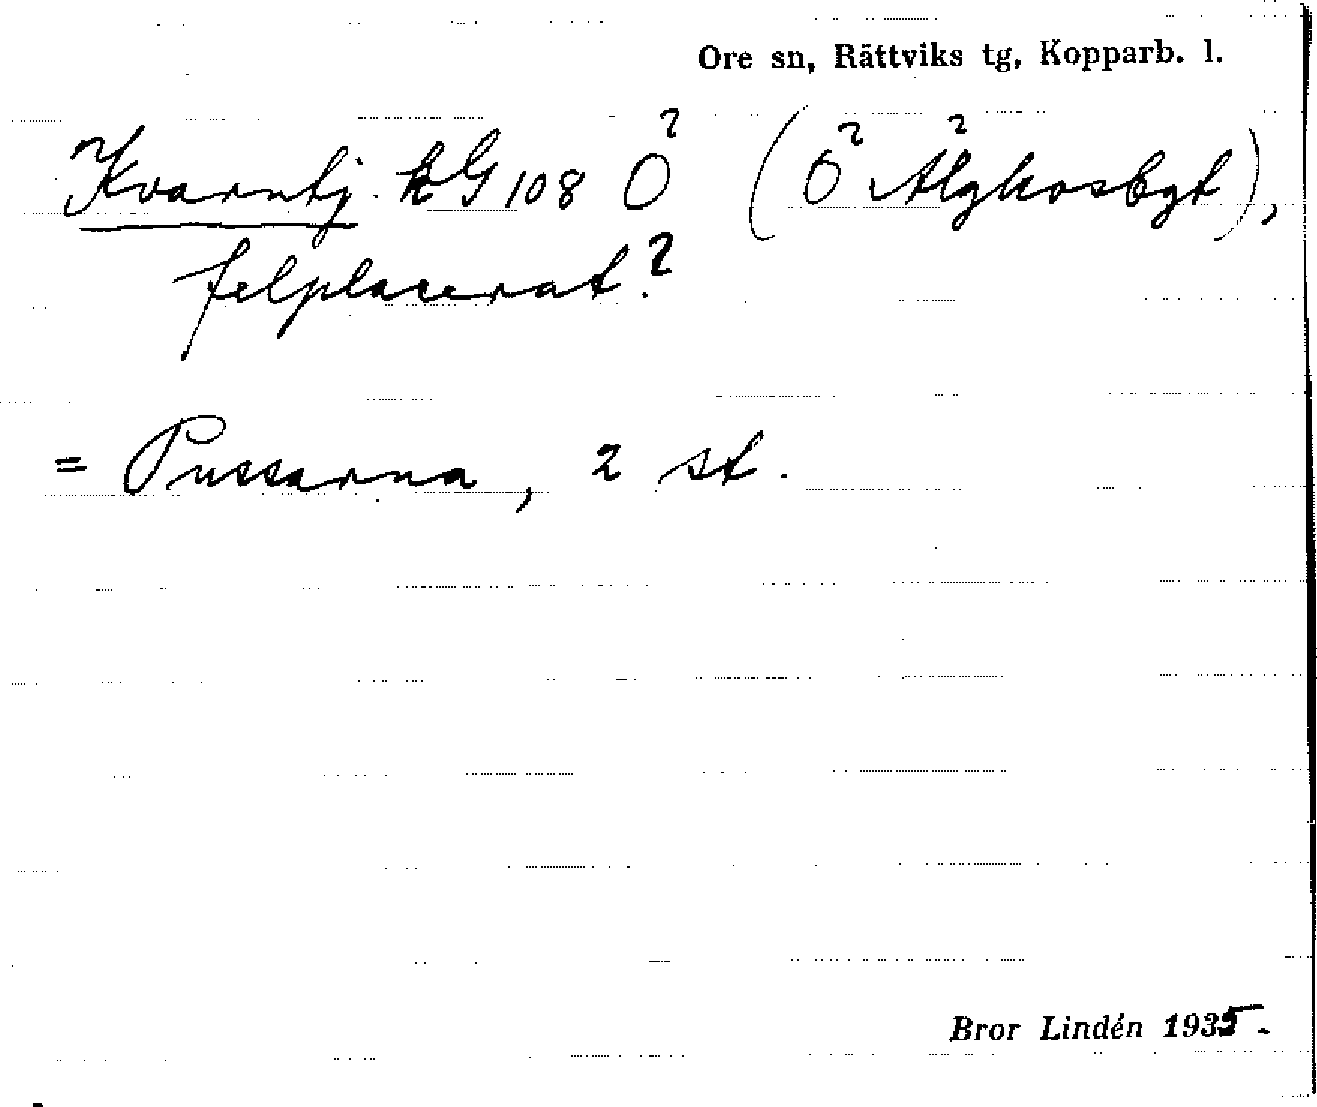 Ore sn, Rättviks tg, Kopparb. l.
Kvarntj. kG 108 Ö (Ö Älgkosbgt),
felplacerat?
= Pussarna, 2 st.
Bror Lindén 1935-